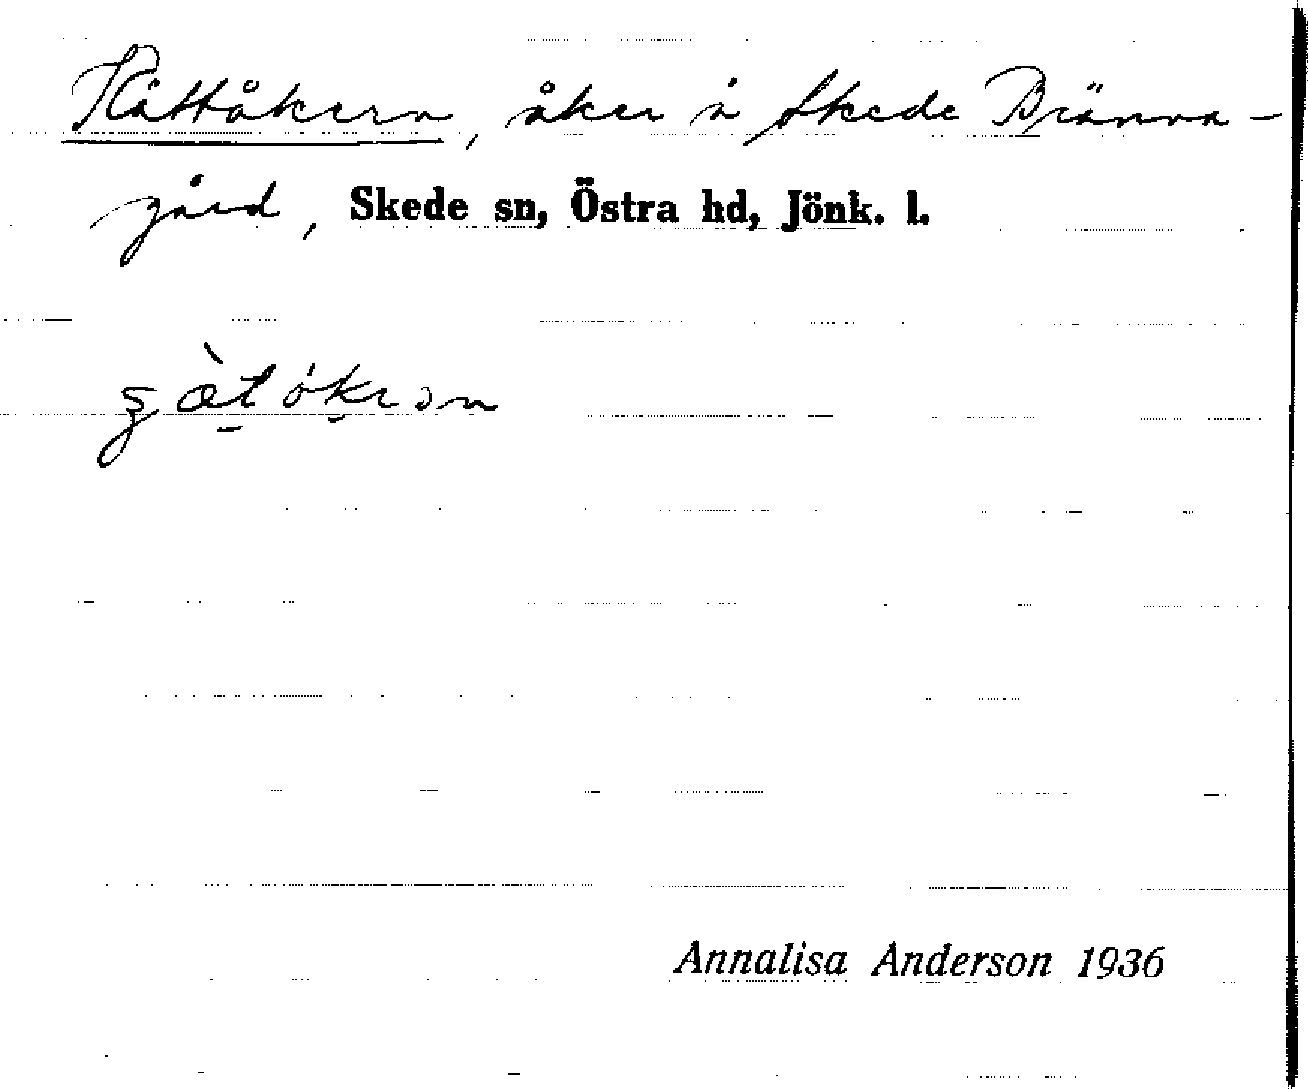 Råttåkern, åker å Skede Bränna-
gård, Skede sn, Östra hd, Jönk. l.
Annalisa Anderson 1936